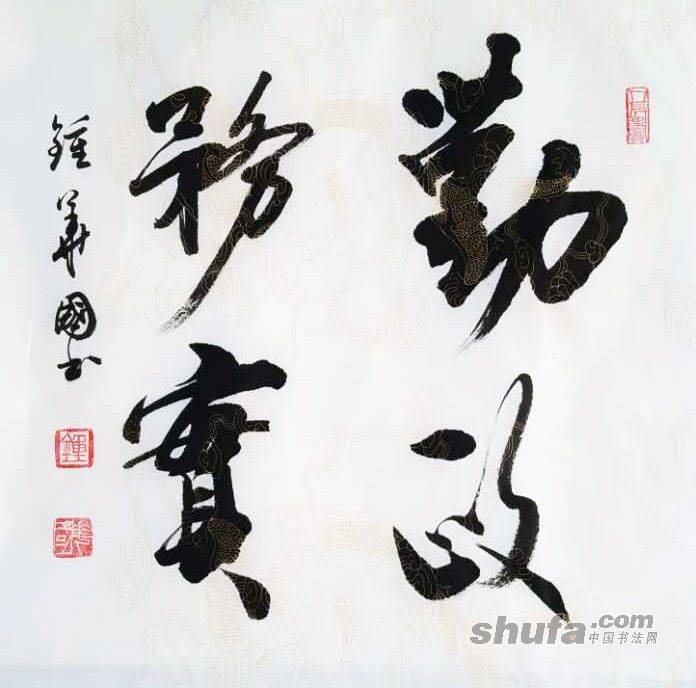 勤政
務實
鍾華國书
鍾
shufa.com
中国书法网